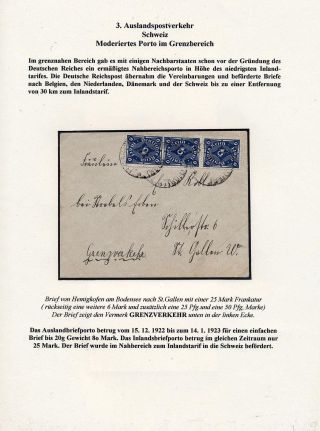 3. Auslandspostverkehr
Schweiz
Moderiertes Porto im Grenzbereich
Im grenznahen Bereich gab es mit einigen Nachbarstaaten schon vor der Gründung des
Deutschen Reiches ein ermäßigtes Nahbereichsporto in Höhe des niedrigsten Inland-
tarifes. Die Deutsche Reichspost übernahm die Vereinbarungen und beförderte Briefe
nach Belgien, den Niederlanden, Dänemark und der Schweiz bis zu einer Entfernung
von 30 km zum Inlandstarif.
Fräulein
bei
Schillerstr 6
Grenzverkehr St. Gallen
Brief von Hemigkofen am Bodensee nach St.Gallen mit einer 25 Mark Frankatur
( rückseitig eine weitere 6 Mark und zusätzlich eine 25 Pfg.und eine 50 Pfg. Marke)
Der Brief zeigt den Vermerk GRENZVERKEHR unten in der linken Ecke.
Das Auslandbriefporto betrug vom 15. 12. 1922 bis zum 14. 1. 1923 für einen einfachen
Brief bis 20g Gewicht 80 Mark. Das Inlandsbriefporto betrug im gleichen Zeitraum nur
25 Mark. Der Brief wurde im Nahbereich zum Inlandstarif in die Schweiz befördert.